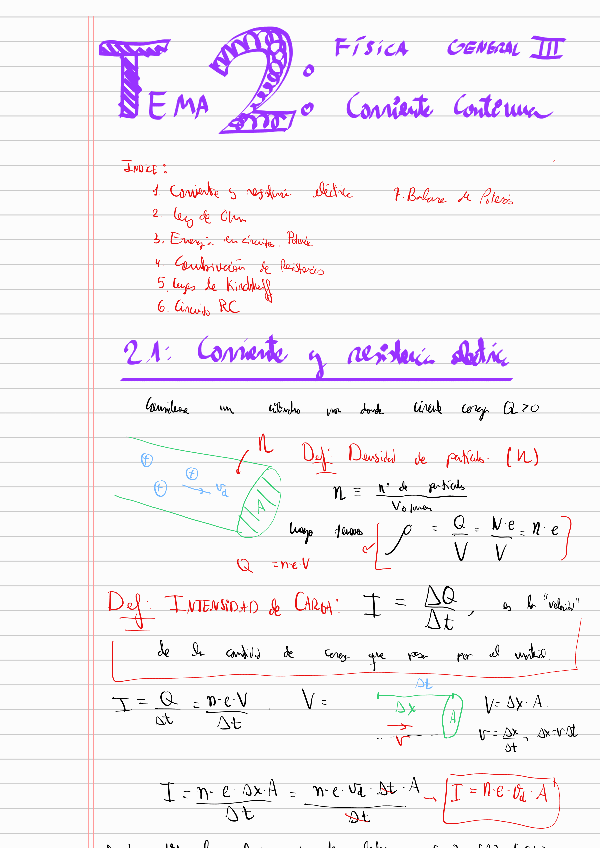 FÍSICA GENERAL III
TEMA 2: Corriente Continua
ÍNDICE:
1 Corriente y resistencia eléctrica 7. Balance de Potencia
2 Ley de Ohm
3. Energía en circuitos. Potencia
4. Combinación de Resistencias
5. Leyes de Kirchhoff
6. Circuito RC
2.1: Corriente y resistencia eléctrica
un cilindro por donde circula carga Q>0
n
Def: Densidad de partículas (n)
+ + + v_d A
n ≡ nº de partículas / Volumen
Luego tenemos ρ = Q/V = N·e/V = n·e
Q = n·e·V
Def: INTENSIDAD de CARGA: I = ΔQ/Δt, es la "velocidad"
de la cantidad de carga que pasa por el
I = Q/Δt = n·e·V/Δt V =
Δt
Δx A
v
V = Δx·A.
v = Δx/Δt, Δx=v·Δt
I = n·e·Δx·A/Δt = n·e·v_d·Δt·A/Δt → I = n·e·v_d·A